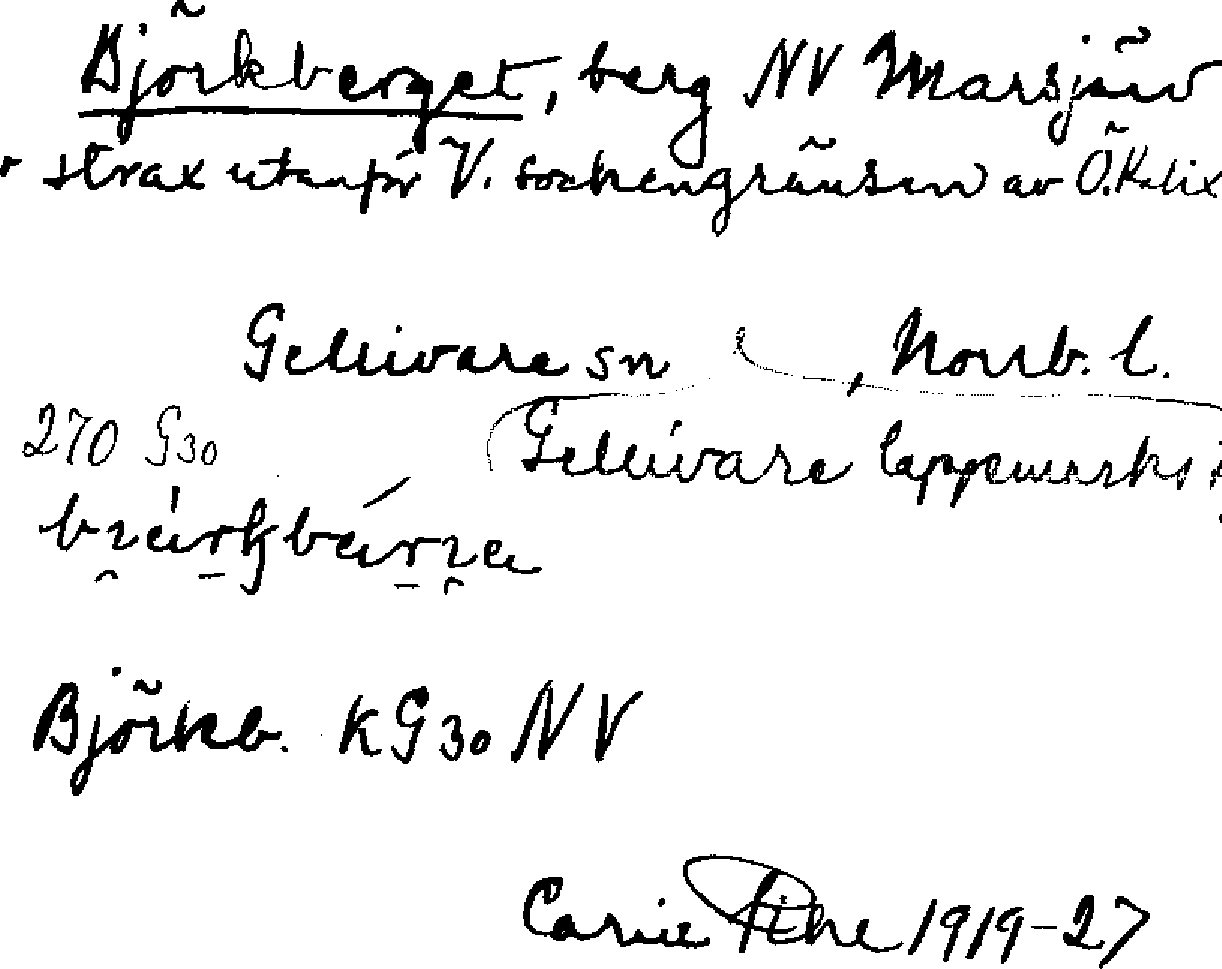 Björkberget, berg NV Marsjärv
strax utanför V. sockengränsen av Ö.Kalix
Gellivare sn , Norrb. l.
270 G30 Gellivare lappmarks
Björkb. KG30 NV
Carin Pihl 1919-27